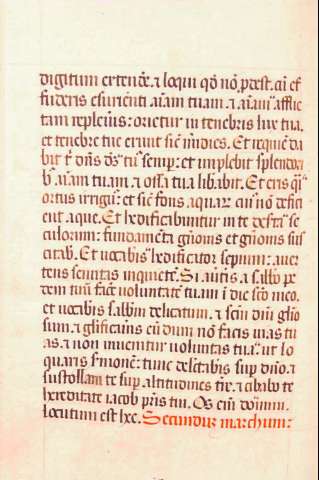 digitum extende(re). ⁊ loqui qđ nō ꝓdest. cū eff
fuderis esurienti aīam tuam. ⁊ aīam afflic
tam repleuis: orietur in tenebris lux tua.
et tenebre tue erunt sic̄ m̄idies. Et requiē da
bit t̄ dn̄s ds̄ tuus semp: et implebit splendori
b; aīam tuam. ⁊ ossa tua libabit. Et eris q̄si
ortus irriguus: et sic̄ fons aquar cui nō defici
ent aque. Et hedificabuntur in te deserta se
culorum: fundam̄ta gn̄onis et gn̄onis sus
citab. Et uocabis hedificator sepium: auer
tens semitas
Si au̅tis a sabb̄o pe
dem tuū facē voluntatē tuam ī die sc̄o meo.
et uocabis sabb̄m delicatum. ⁊ sc̄m dn̄i glīo
sum. ⁊ glificauis eū dum nō facis uias tu
as. ⁊ non inuenitur voluntas tua. ut lo
quaris smonē: tunc delcabis sup dn̄o. ⁊
sustollam te sup altitudines tīe. ⁊ cibabo te
hereditate iacob pr̄is tui. Os eīm domini
locutum est hec. Secundum marchum: